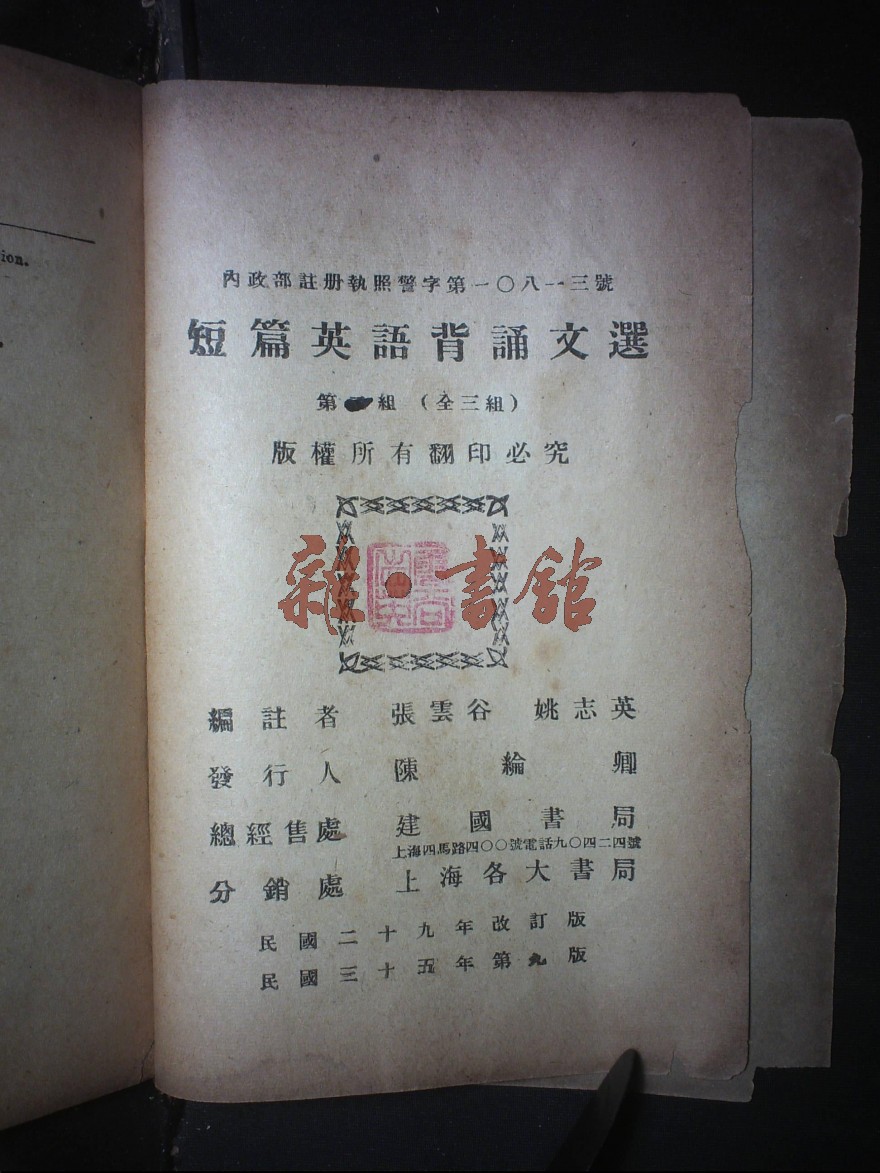 ion.
內政部註册執照警字第一〇八一三號
短篇英語背誦文選
第 組（全三組）
版權所有翻印必究
雜·書館
編註者 張雲谷 姚志英
發行人 陳綸卿
總經售處 建國書局
上海四馬路四〇〇號電話九〇四二四號
分銷處 上海各大書局
民國二十九年改訂版
民國三十五年第九版